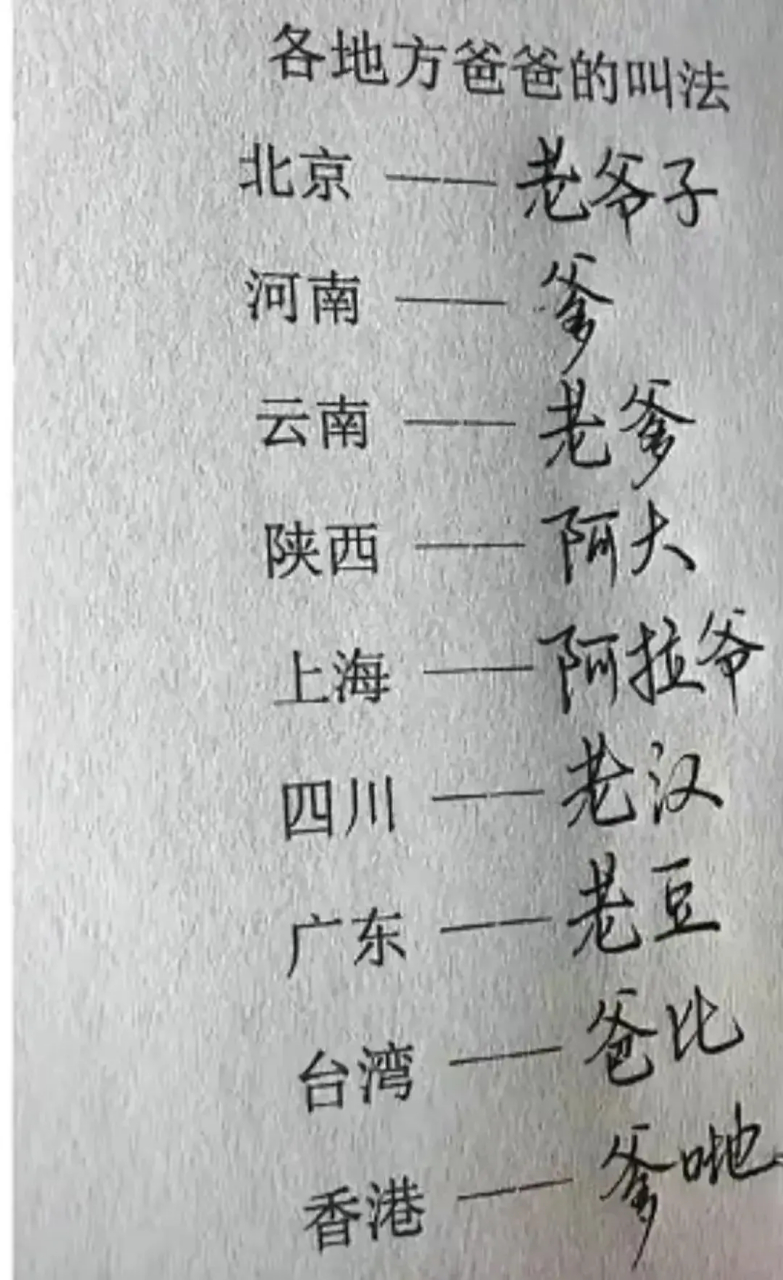 各地方爸爸的叫法
北京 —— 老爷子
河南 —— 爹
云南 —— 老爹
陕西 —— 阿大
上海 —— 阿拉爷
四川 —— 老汉
广东 —— 老豆
台湾 —— 爸比
香港 —— 爹哋